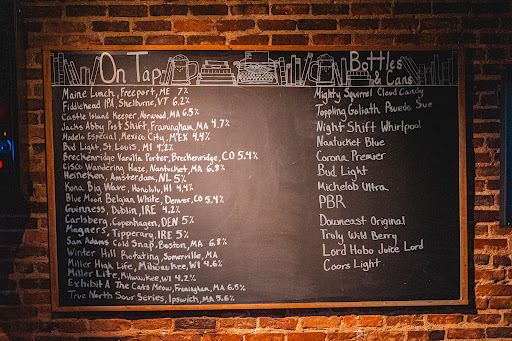 On Tap
Maine Lunch, Freeport, ME 7%
Fiddlehead IPA, Shelburne, VT 6.2%
Castle Island Keeper, Norwood, MA 6.5%
Jacks Abby Post Shift, Framingham, MA 4.7%
Modelo Especial, Mexico City, MEX 4.4%
Bud Light, St. Louis, MI 4.2%
Breckenridge Vanilla Porter, Breckenridge, CO 5.4%
Cisco Wandering Haze, Nantucket, MA 6.8%
Heineken, Amsterdam, NL 5%
Kona Big Wave, Honolulu, HI 4.4%
Blue Moon Belgian White, Denver, CO 5.4%
Guinness, Dublin, IRE 4.2%
Carlsberg, Copenhagen, DEN 5%
Magners, Tipperary, IRE 5%
Sam Adams Cold Snap, Boston, MA 6.8%
Winter Hill Rotating, Somerville, MA
Miller High Life, Milwaukee, WI 4.6%
Miller Lite, Milwaukee, WI 4.2%
Exhibit A The Cats Meow, Framingham, MA 6.5%
True North Sour Series, Ipswich, MA 5.6%
Bottles
& Cans
Mighty Squirrel Cloud Candy
Toppling Goliath Psuedo Sue
Night Shift Whirlpool
Nantucket Blue
Corona Premier
Bud Light
Michelob Ultra
PBR
Downeast Original
Truly Wild Berry
Lord Hobo Juice Lord
Coors Light